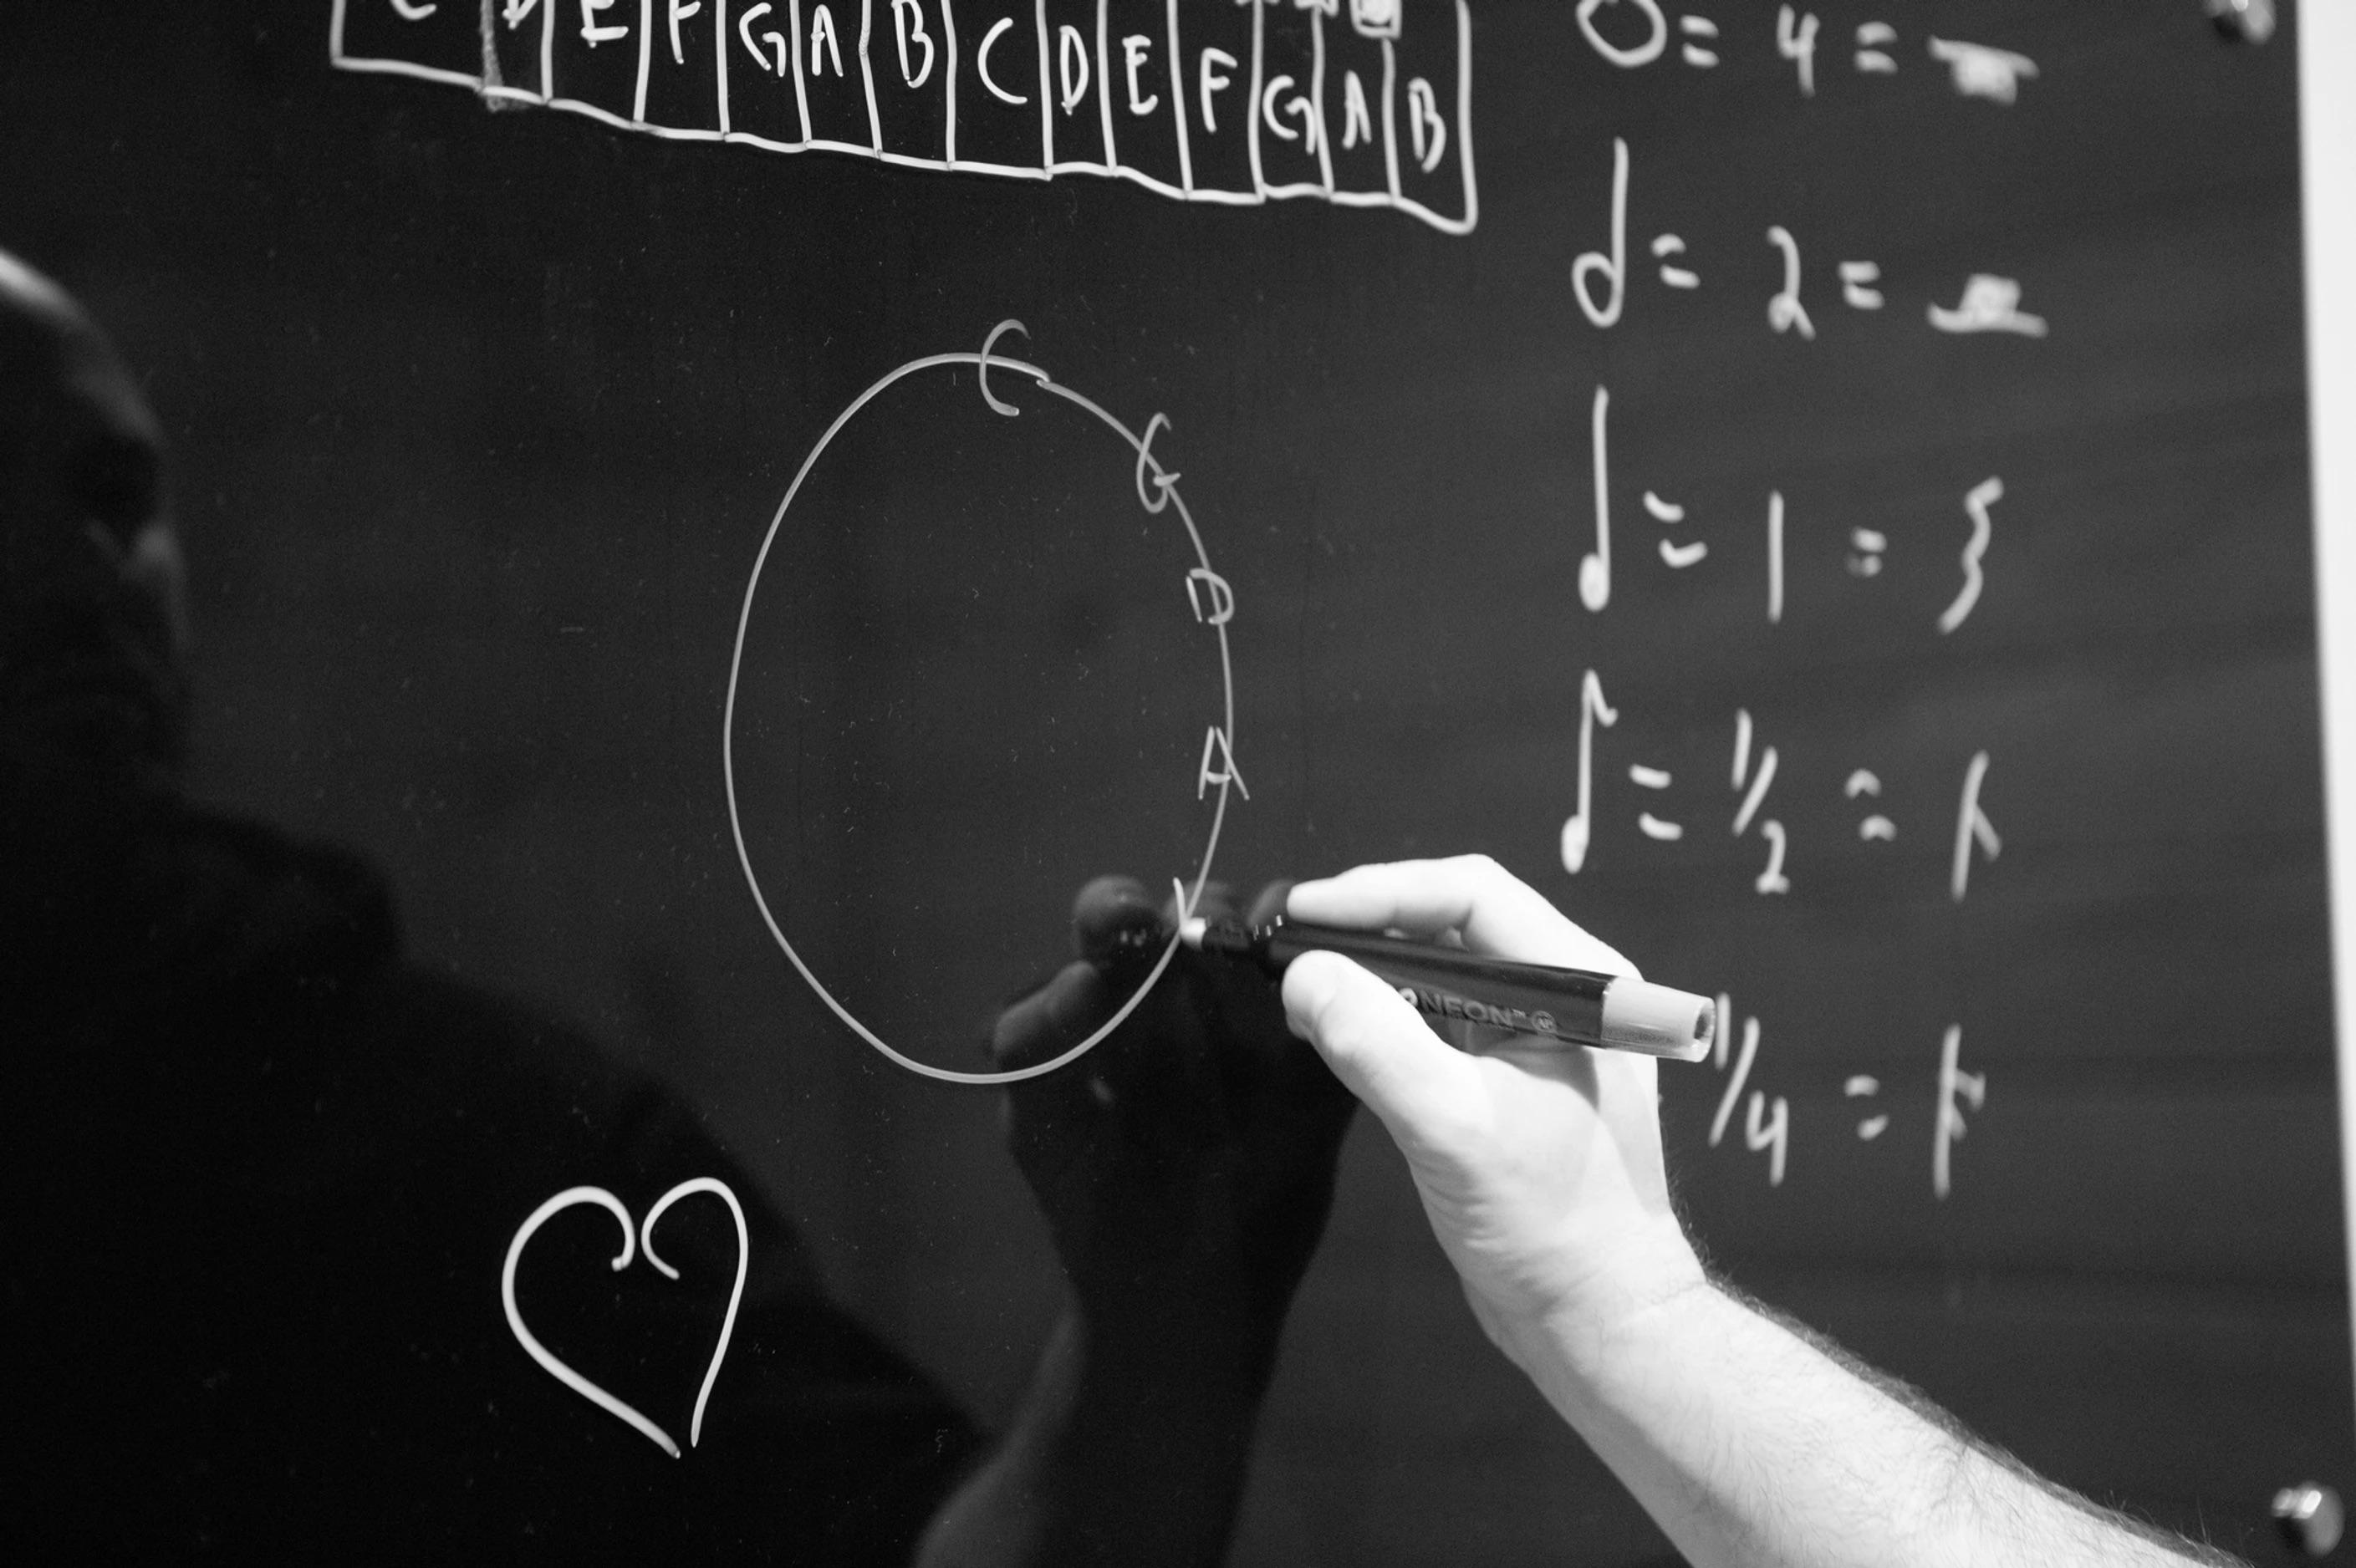 C D E F G A B C D E F G A B
O = 4 =
= 2 =
= 1 =
= 1/2 =
1/4 =
C
G
D
A
NEON